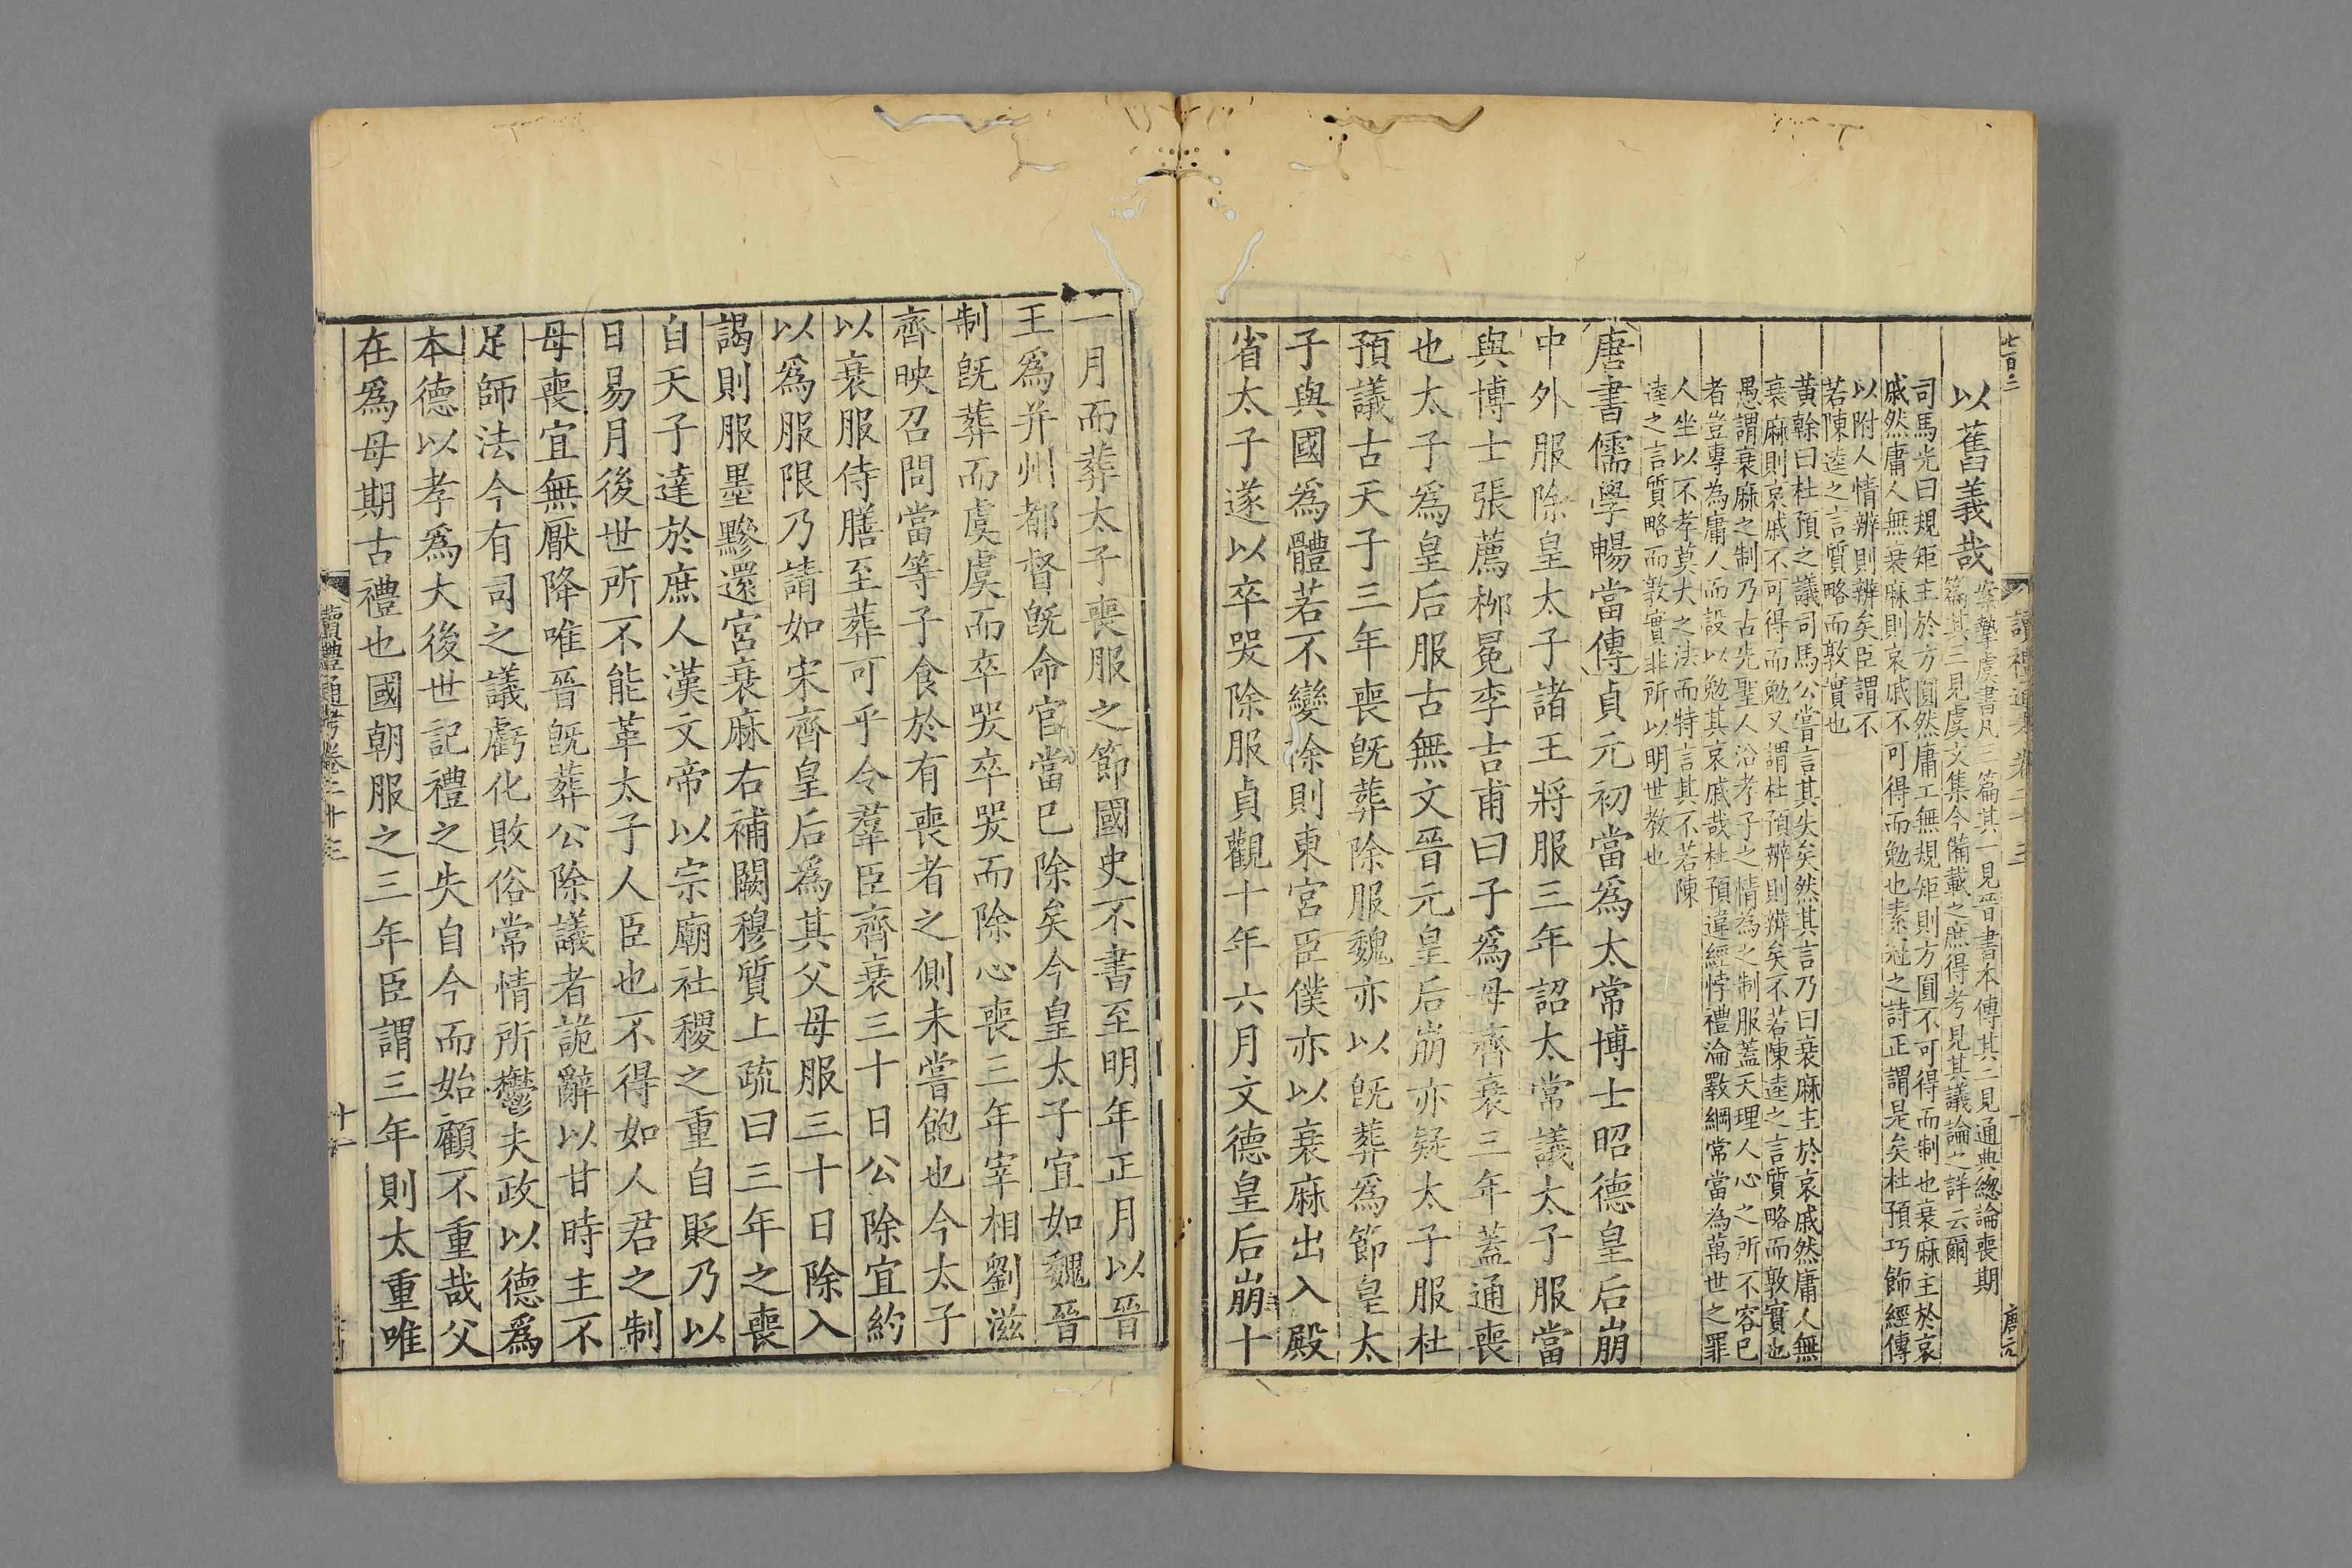 七百二
讀禮通考 卷二十三
十
唐元
以舊義哉
案摯虞書凡三篇其一見晉書本傳其二見通典總論喪期
篇其三見虞文集今備載之庶得考見其議論之詳云爾
司馬光曰規矩主於方圓然庸工無規矩則方圓不可得而制也衰麻主於哀
戚然庸人無衰麻則哀戚不可得而勉也素冠之詩正謂是矣杜預巧飾經傳
以附人情辨則辨矣臣謂不
若陳逵之言質略而敦實也
黃榦曰杜預之議司馬公嘗言其失矣然其言乃曰衰麻主於哀戚然庸人無
衰麻則哀戚不可得而勉又謂杜預辨則辨矣不若陳逵之言質略而敦實也
愚謂衰麻之制乃古先聖人沿孝子之情為之制服蓋天理人心之所不容已
者豈專為庸人而設以勉其哀戚哉杜預違經悖禮淪斁綱常當為萬世之罪
人坐以不孝莫大之法而特言其不若陳
逵之言質略而敦實非所以明世教也
唐書儒學暢當傳貞元初當爲太常博士昭德皇后崩
中外服除皇太子諸王將服三年詔太常議太子服當
與博士張薦柳冕李吉甫曰子爲母齊衰三年蓋通喪
也太子爲皇后服古無文晉元皇后崩亦疑太子服杜
預議古天子三年喪旣葬除服魏亦以旣葬爲節皇太
子與國爲體若不變除則東宮臣僕亦以衰麻出入殿
省太子遂以卒哭除服貞觀十年六月文德皇后崩十
一月而葬太子喪服之節國史不書至明年正月以晉
王爲并州都督旣命官當已除矣今皇太子宜如魏晉
制旣葬而虞虞而卒哭卒哭而除心喪三年宰相劉滋
齊映召問當等子食於有喪者之側未嘗飽也今太子
以衰服侍膳至葬可乎令羣臣齊衰三十日公除宜約
以爲服限乃請如宋齊皇后爲其父母服三十日除入
謁則服墨黲還宮衰麻右補闕穆質上疏曰三年之喪
自天子達於庶人漢文帝以宗廟社稷之重自貶乃以
日易月後世所不能革太子人臣也不得如人君之制
母喪宜無厭降唯晉旣葬公除議者詭辭以甘時主不
足師法今有司之議虧化敗俗常情所鬱夫政以德爲
本德以孝爲大後世記禮之失自今而始顧不重哉父
在爲母期古禮也國朝服之三年臣謂三年則太重唯
讀禮通考卷二十三
十一